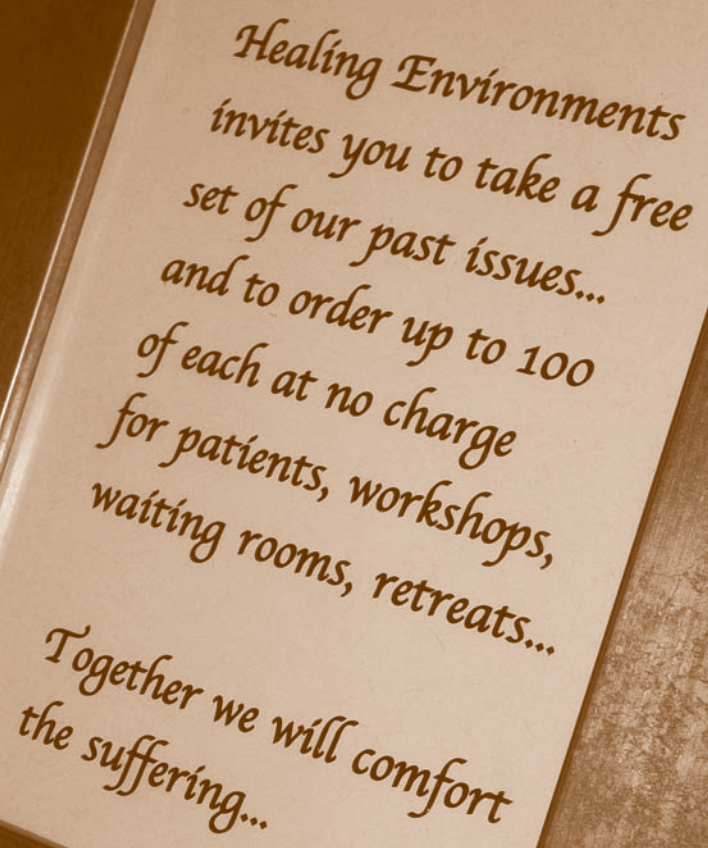 Healing Environments
invites you to take a free
set of our past issues...
and to order up to 100
of each at no charge
for patients, workshops,
waiting rooms, retreats...
Together we will comfort
the suffering...